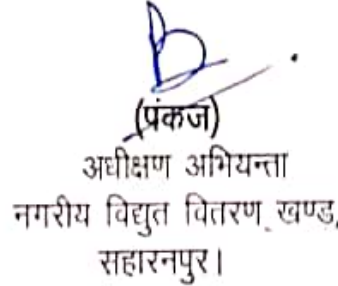 (पंकज)
अधीक्षण अभियन्ता
नगरीय विद्युत वितरण खण्ड,
सहारनपुर।